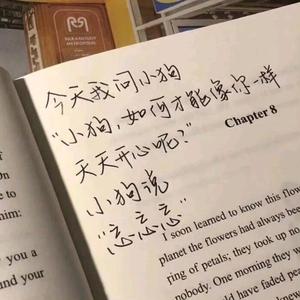 今天我问小狗
"小狗,如何才能像你一样
天天开心呢?"
小狗说
"忘忘忘"
Chapter 8
I soon learned to know this flow
planet the flowers had always bee
ring of petals; they took up no
nobody. One morning they w
ould have faded pe
to
him:
you a
und your